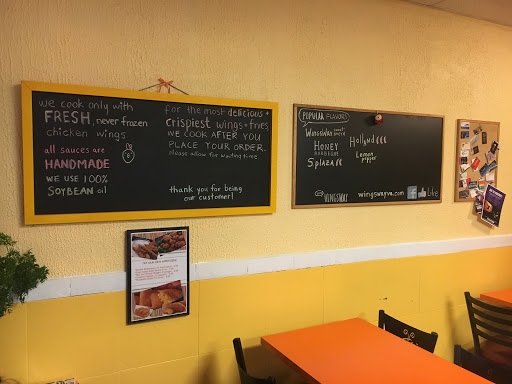 we cook only with
FRESH, never frozen
chicken wings
all sauces are
HANDMADE
WE USE 100%
SOYBEAN oil
for the most delicious +
crispiest wings + fries
WE COOK AFTER YOU
PLACE YOUR ORDER.
please allow for waiting time
thank you for being
our customer!
POPULAR FLAVORS
WINGSWAY
HONEY
BARBEQUE
5 PLAZA
Holland
Lemon
pepper
WINGSWAY
wingswayva.com
Like